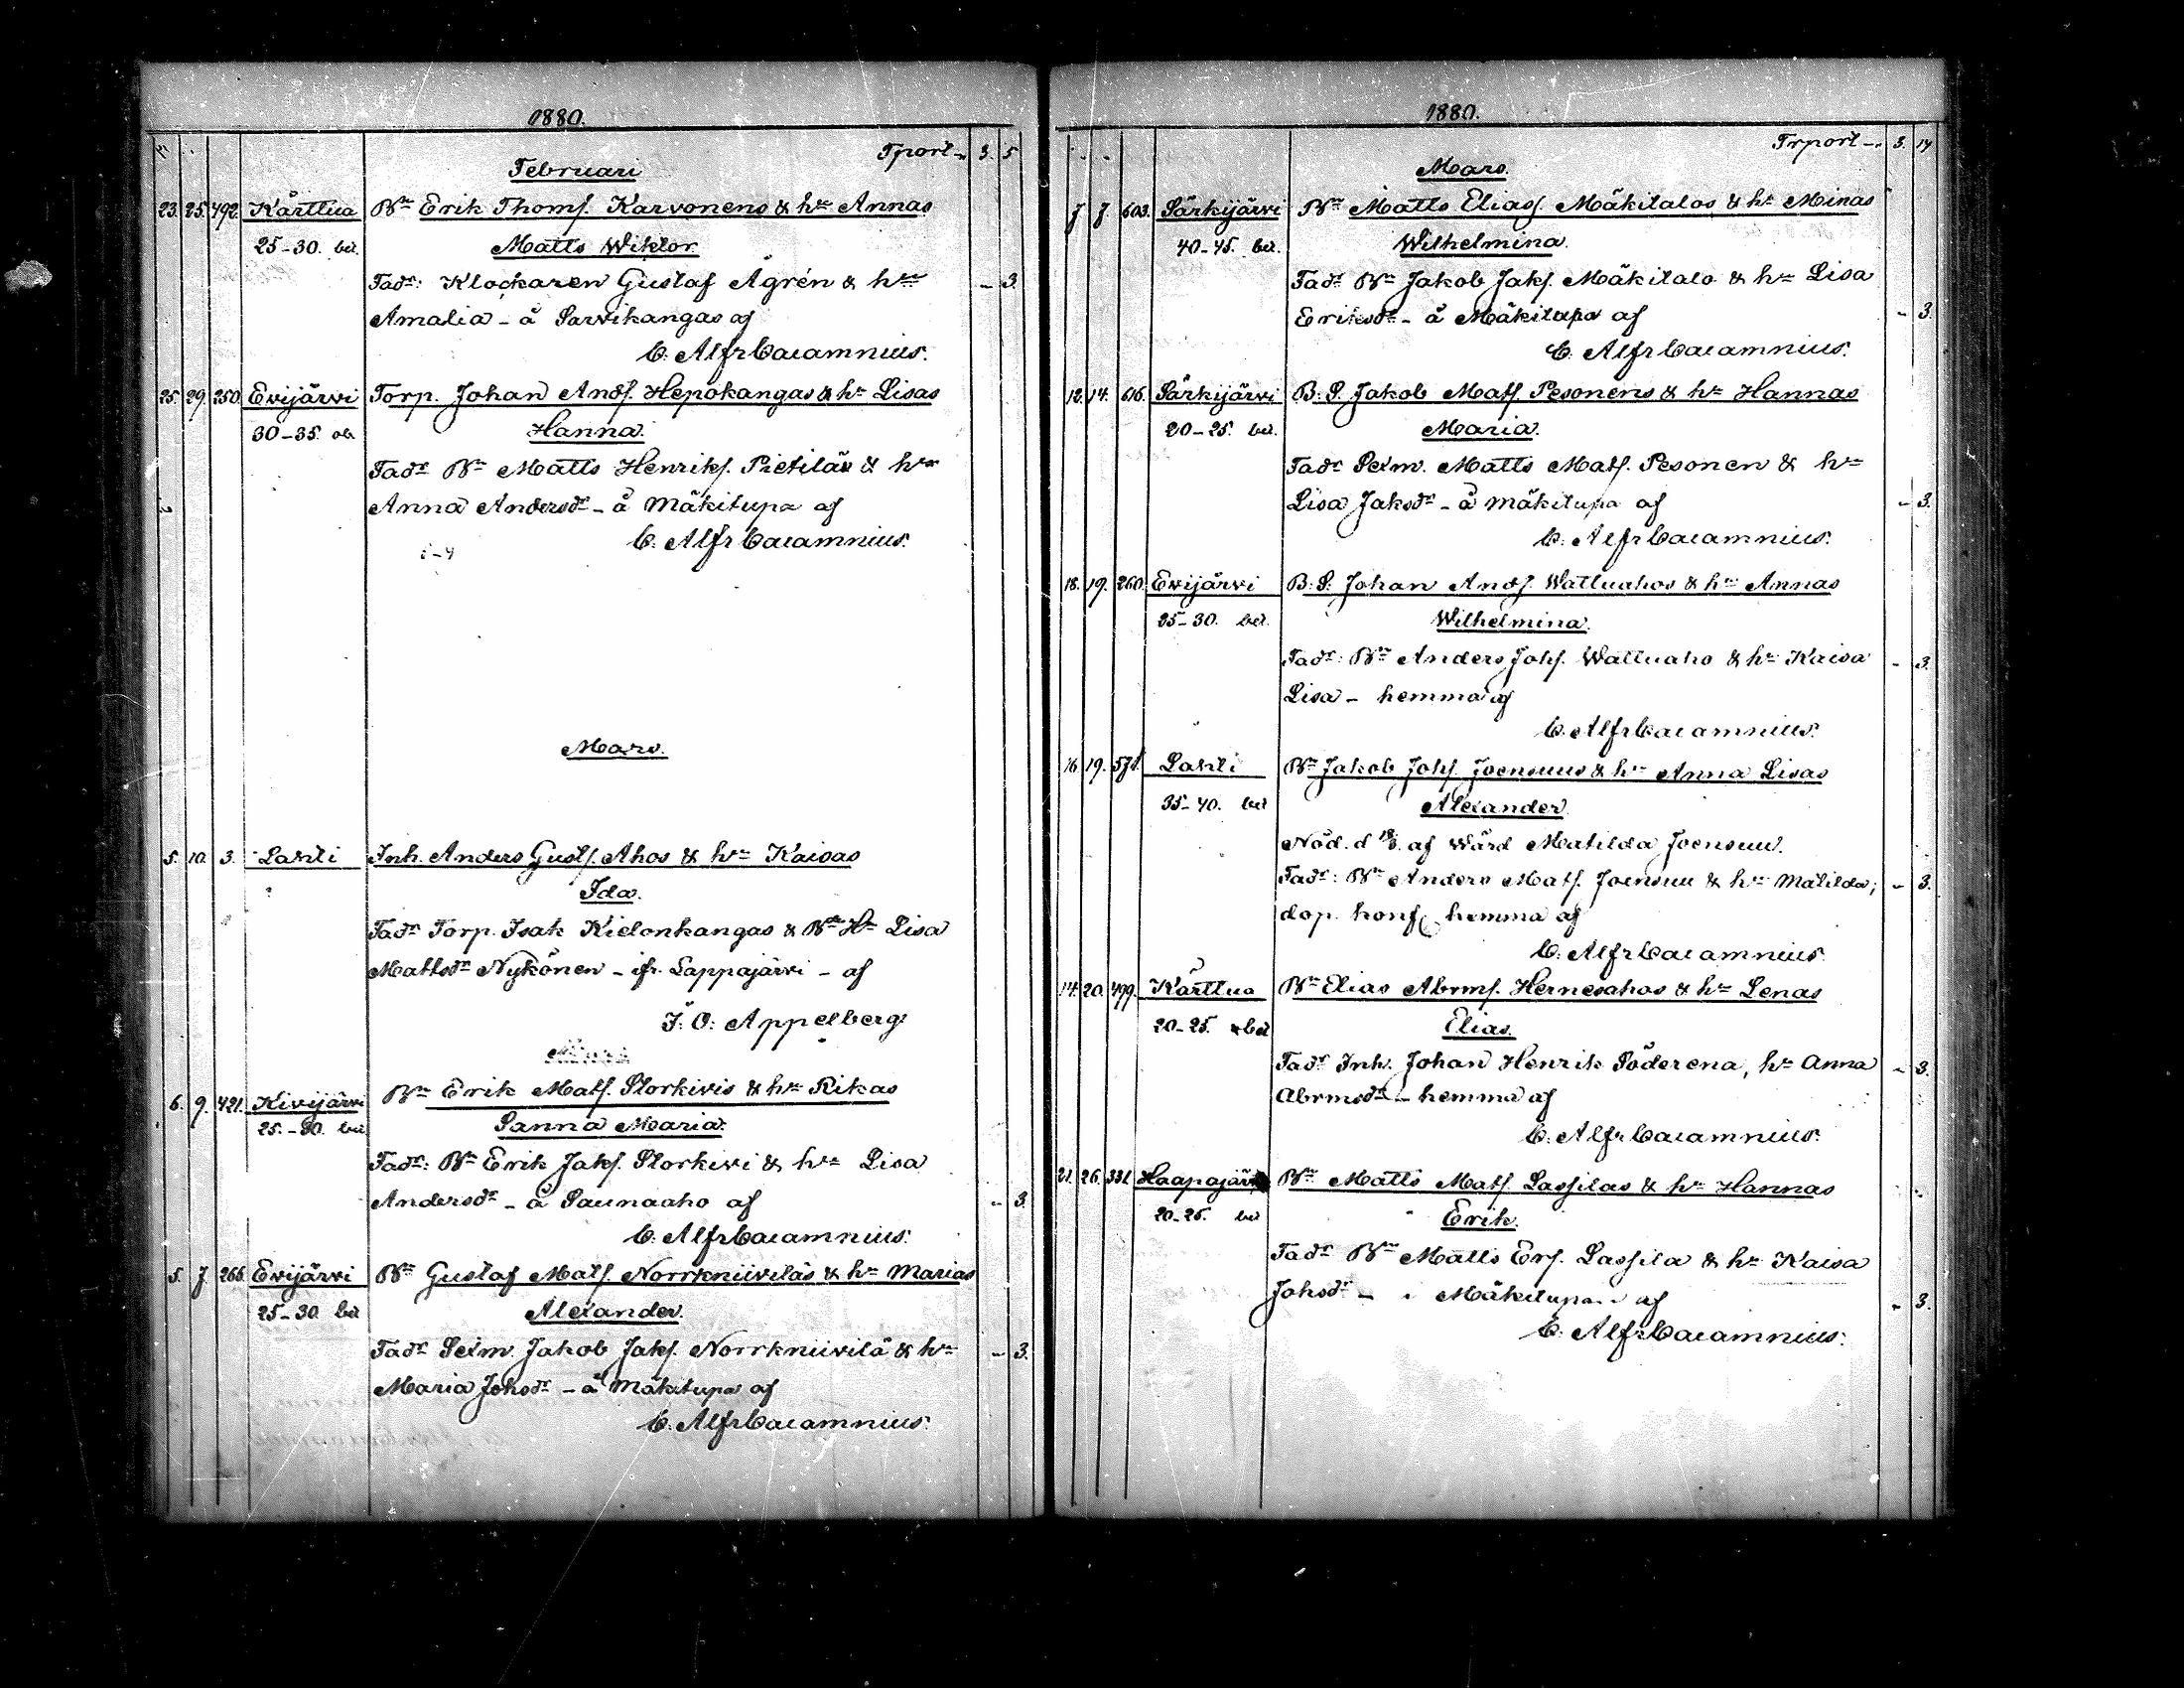 1880.
Tport - 3. 5
Februari
23. 25. 492. Kärttua Bn Erik Thoms. Karvonens & hu Annas
25-30. bd. Matts Wiktor
Fadr: Klockaren Gustaf Ågrén & hu - 3.
Amalia - å Sarvikangas af
C. Alfr Cacamnius.
25. 29. 250. Evijärvi Torp. Johan Ands. Hepokangas & hu Lisas
30-35. Hanna.
Fadr Bn Matts Henriks. Pietilä & hu
Anna Andersdr - å Mäkitupa af
C. Alfr Cacamnius.
Mars.
5. 10. 3. Lahti Inh. Anders Gusts. Ahos & hu Kaisas
Ida.
Fadr Torp. Isak Kielonkangas & Bde Hu Lisa
Mattsdr Nykönen - ifr. Lappajärvi - af
J. O. Appelberg.
6. 9. 421. Kivijärvi Bn Erik Mats. Storkivis & hu Rikas
25.-30. bd Sanna Maria.
Fadr: Bn Erik Jaks. Storkivi & hu Lisa
Andersdr - å Saunaaho af - 3.
C. Alfr Cacamnius.
5. 7. 266. Evijärvi Bn Gustaf Mats. Norrkniiviläs & hu Marias
25-30 bd Alexander.
Fadr Sexm. Jakob Jaks. Norrkniivilä & hu - 3.
Maria Johsdr - å Mäkitupa af
C. Alfr Cacamnius.
1880.
Trport - 3. 14
Mars.
7 7. 603. Särkijärvi Bn Matts Elias. Mäkitalos & hu Minas
40-45. bd. Wilhelmina.
Fadr Bn Jakob Jaks. Mäkitalo & hu Lisa
Eriksdr - å Mäkitupa af - 3.
C. Alfr Cacamnius.
12. 14. 616. Särkijärvi B. S. Jakob Mats. Pesonens & hu Hannas
20-25. bd. Maria.
Fadr Sexm. Matts Mats. Pesonen & hu
Lisa Jaksdr - å Mäkitupa af - 3.
C. Alfr Cacamnius.
18. 19. 260. Evijärvi B. S. Johan Ands. Wattuahos & hu Annas
25-30. bd. Wilhelmina.
Fadr: Bn Anders Johs. Wattuaho & hu Kaisa - 3.
Lisa - hemma af
C. Alfr Cacamnius.
16 19. 571. Lahti Bn Jakob Johs. Joensuus & hu Anna Lisas
35-40. bd Alexander.
Nöd. d 18/3. af Wärd Matilda Joensuu.
Fadr: Bn Anders Mats. Joensuu & hu Matilda; - 3.
dop. konf. hemma af
C. Alfr Cacamnius.
14. 20. 499. Kärttua Bn Elias Abrms. Hernesahos & hu Lenas
20-25. bd Elias.
Fadr Inh. Johan Henrik Söderena, hu Anna - 3.
Abrmsdr - hemma af
C. Alfr Cacamnius.
21. 26. 331. Haapajärvi Bn Matts Mats. Lassilas & hu Hannas
20-25. bd Erik.
Fadr Bn Matts Ers. Lassila & hu Kaisa
Johsdr - Mäkitupa af - 3.
C. Alfr Cacamnius.